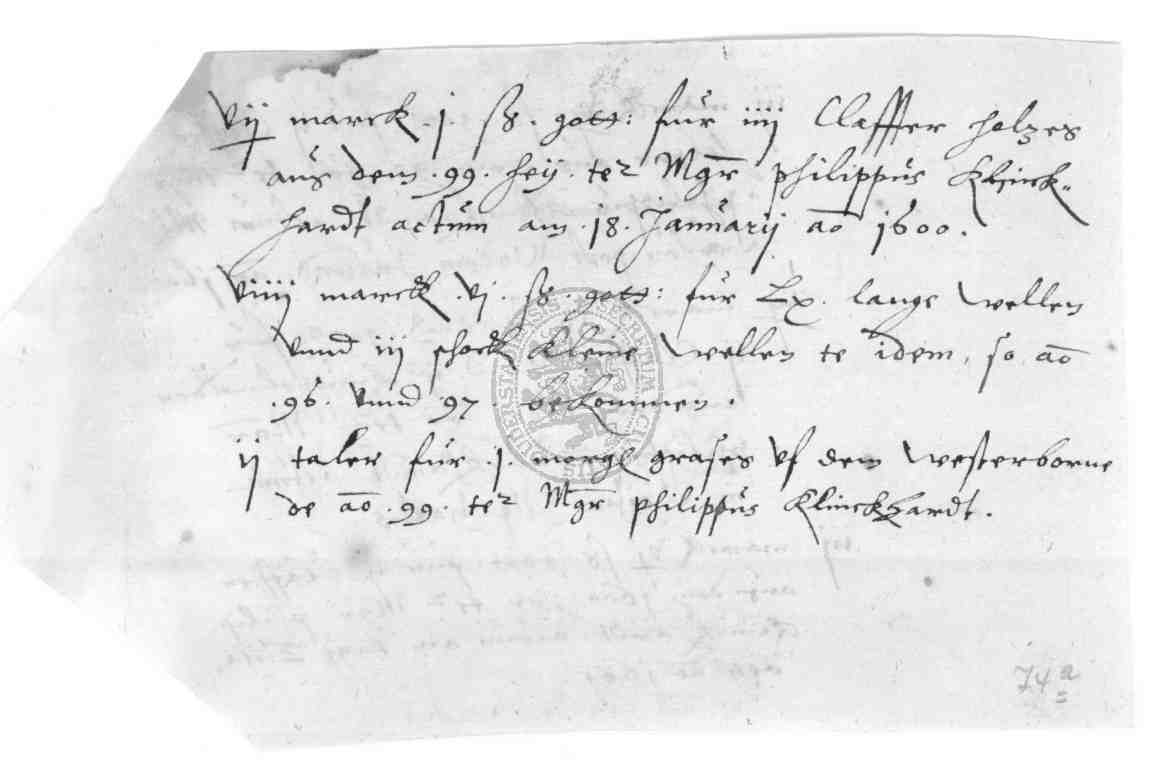 vij marck .j. ß. gott: fur iiij Claffter holzes
aus dem .99. hey. ter Mgr philippus Klinck-
hardt actum am .18. Januarij ao 1600.
viiij marck .vj. ß. gott: fur Lx. lange wellen
vnnd iij schock kleine wellen te idem, so ao
.96. vnnd .97. bekommen.
ij taler fur .j. morgl grases vf dem westerborne
de ao .99. ter Mgr philippus Klinckhardt.
74 a